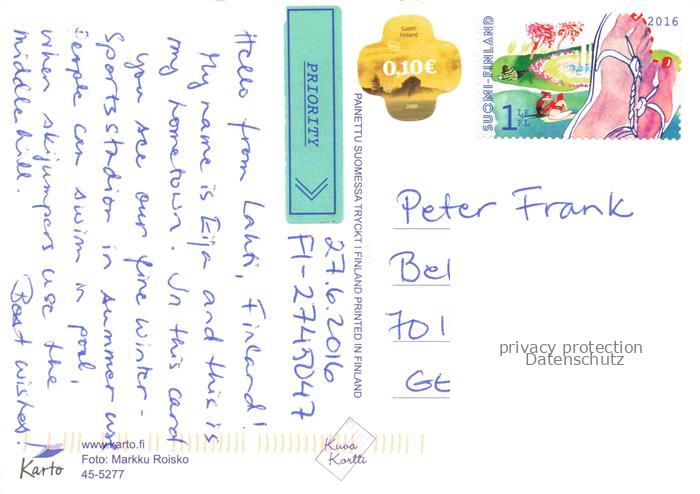 Hello from Lahti, Finland!
My name is Eija and this is
my hometown. In this card
you see our fine winter-
sportsstadion in summer use
People can swim in pool,
when skijumpers use the
middlehill.
Best wishes!
27.6.2016
FI-2745047
PRIORITY
PAINETTU SUOMESSA TRYCKT I FINLAND PRINTED IN FINLAND
Suomi
Finland
0,10€
2008
SUOMI-FINLAND
2016
1 LK
KL
Peter Frank
Bel
701
GE
privacy protection
Datenschutz
Karto
www.karto.fi
Foto: Markku Roisko
45-5277
Kuva
Kortti